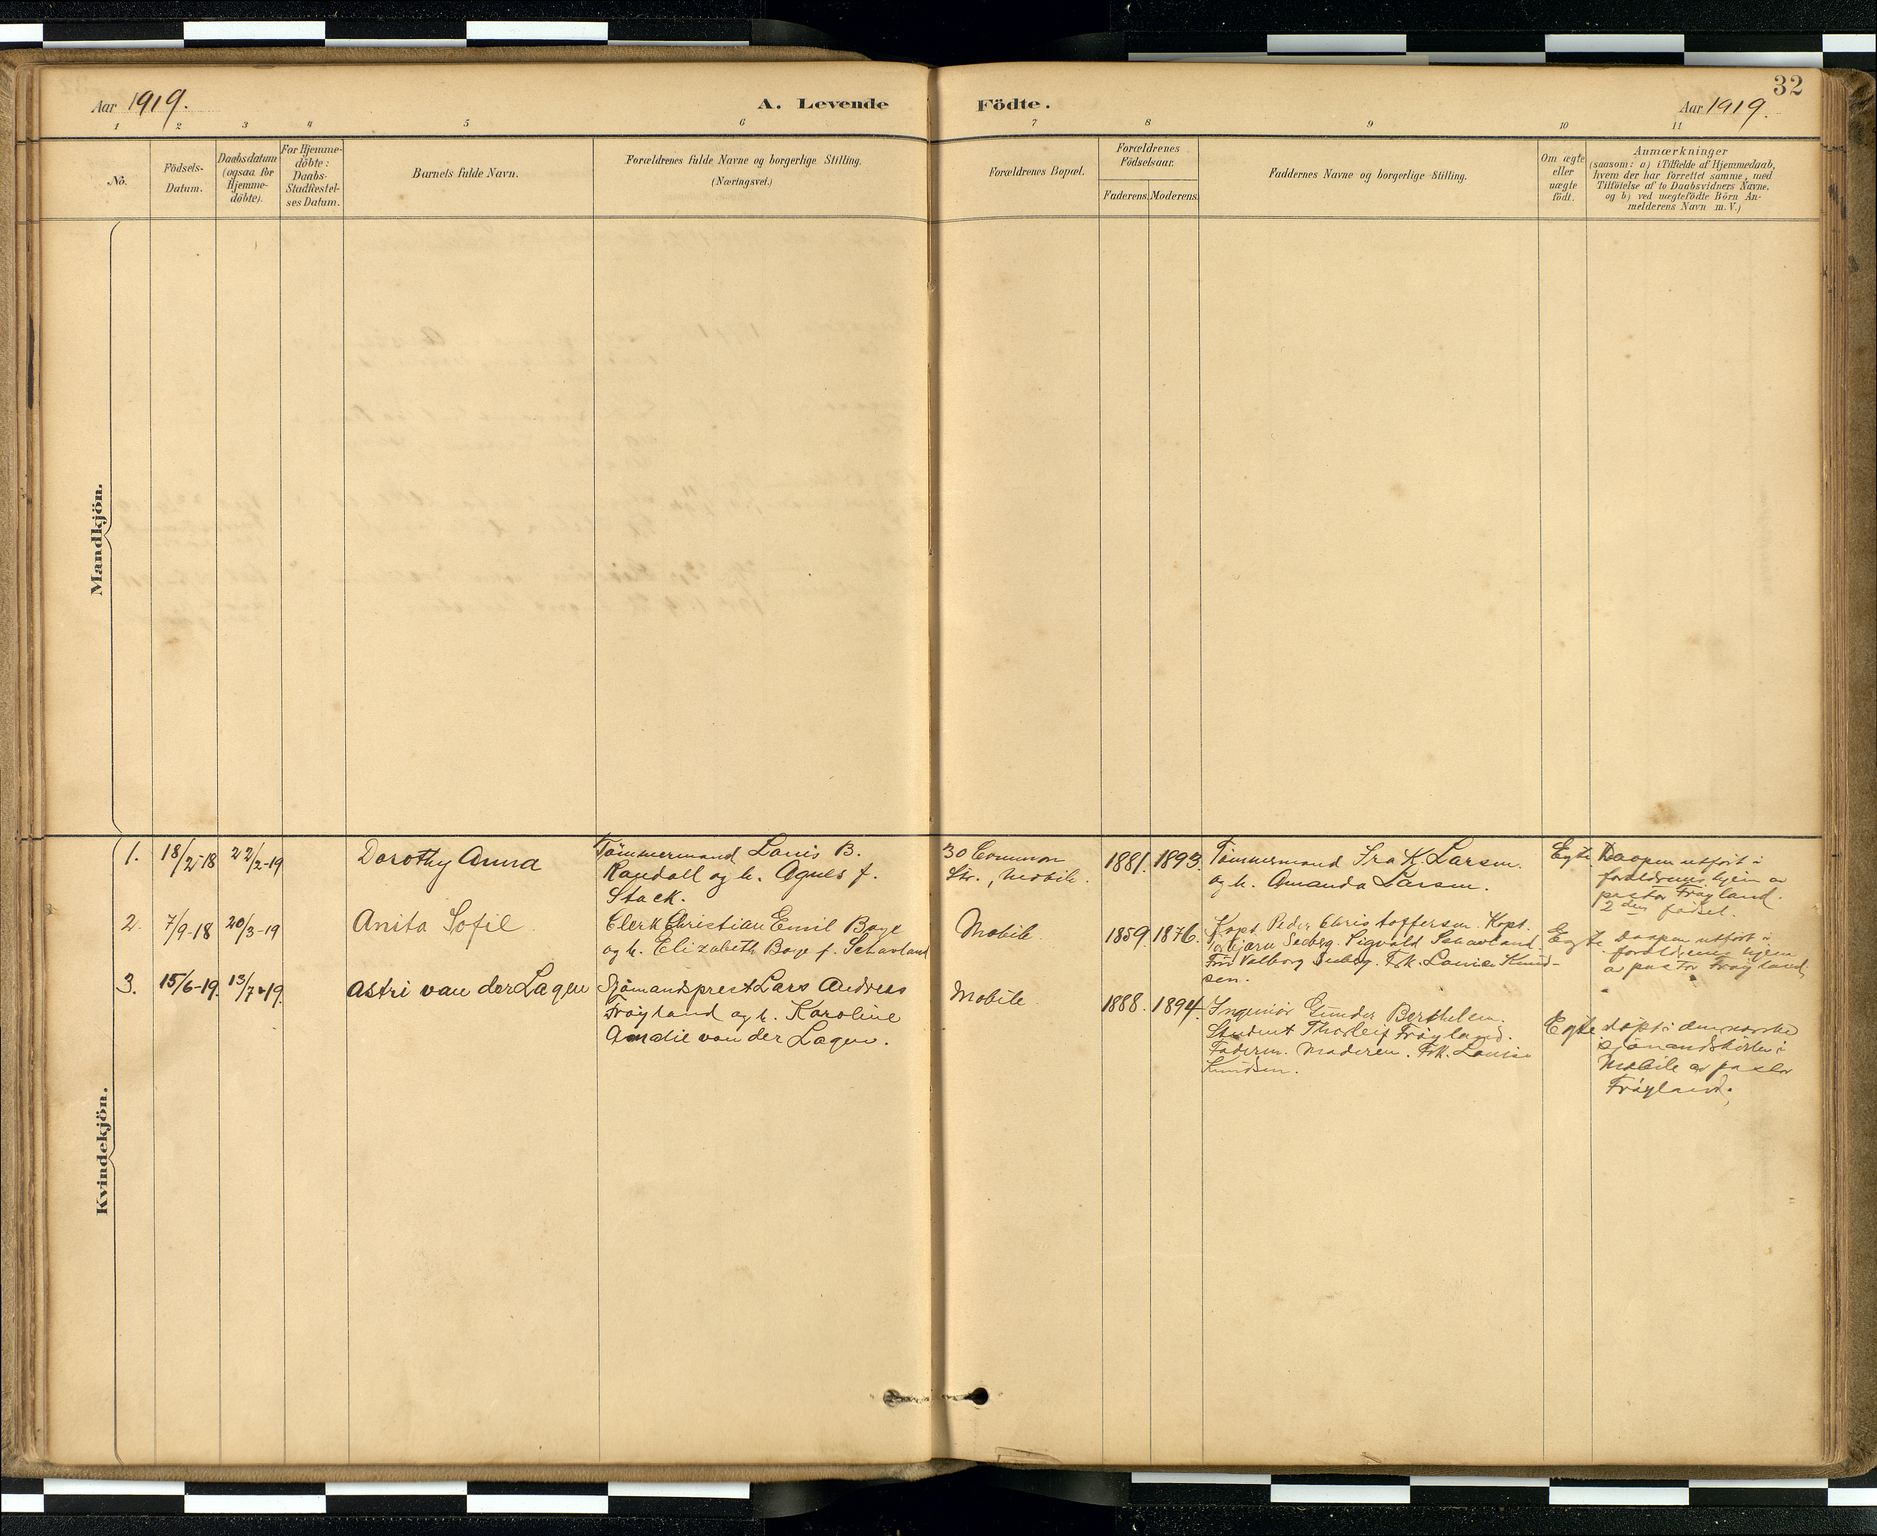 Aar 1919.
A. Levende
Födte.
Aar 1919.
32
1 2 3 4 5 6 7 8 9 10 11
No.
Födsels-
Datum.
Daabsdatum
(ogsaa for
Hjemme-
döbte).
For Hjemme-
döbte:
Daabs-
Stadfæstel-
ses Datum.
Barnets fulde Navn.
Forældrenes fulde Navne og borgerlige Stilling.
(Næringsvei.)
Forældrenes Bopæl.
Forældrenes
Födselsaar.
Faderens. Moderens.
Faddernes Navne og borgerlige Stilling.
Om ægte
eller
uægte
födt.
Anmærkninger
(saasom: a) i Tilfælde af Hjemmedaab,
hvem der har forrettet samme, med
Tilföielse af to Daabsvidners Navne.
og b) ved uægtefödte Börn An-
melderens Navn m. V.)
Mandkjön.
Kvindekjön.
1. 18/2-18 22/2-19 Dorothy Anna
Tømmermand Louis B.
Ragdoll og h. Agnes f.
Stack.
30 Common
Str., Mobile.
1881. 1893.
Tømmermand Ira K. Larsen.
og h. Amanda Larsen.
Egte.
Daapen utført i
foreldrenes hjem av
pastor Frøyland.
2den fødsel.
2. 7/9-18 20/3-19 Anita Sofie
Clerk Christian Emil Boye
og h. Elizabeth Boye f. Schavland
Mobile
1859. 1876.
Kapt. Peder Christoffersen. Kapt.
Torbjørn Seeberg. Sigvald Schavland.
Fru Valborg Seeberg. Frk. Louise Knud-
sen.
Egte.
Daapen utført i
foreldrenes hjem
av pastor Frøyland.
3. 15/6-19. 13/7-19. Astri van der Lagen
Sjømandsprest Lars Andreas
Frøyland og h. Karoline
Amalie van der Lagen.
Mobile.
1888. 1894.
Ingeniør Gunder Berthelsen.
Student Thorleif Frøyland.
Faderen. Moderen. Frk. Louise
Knudsen.
Egte
døpt i den norske
sjømandskirke i
Mobile av pastor
Frøyland.